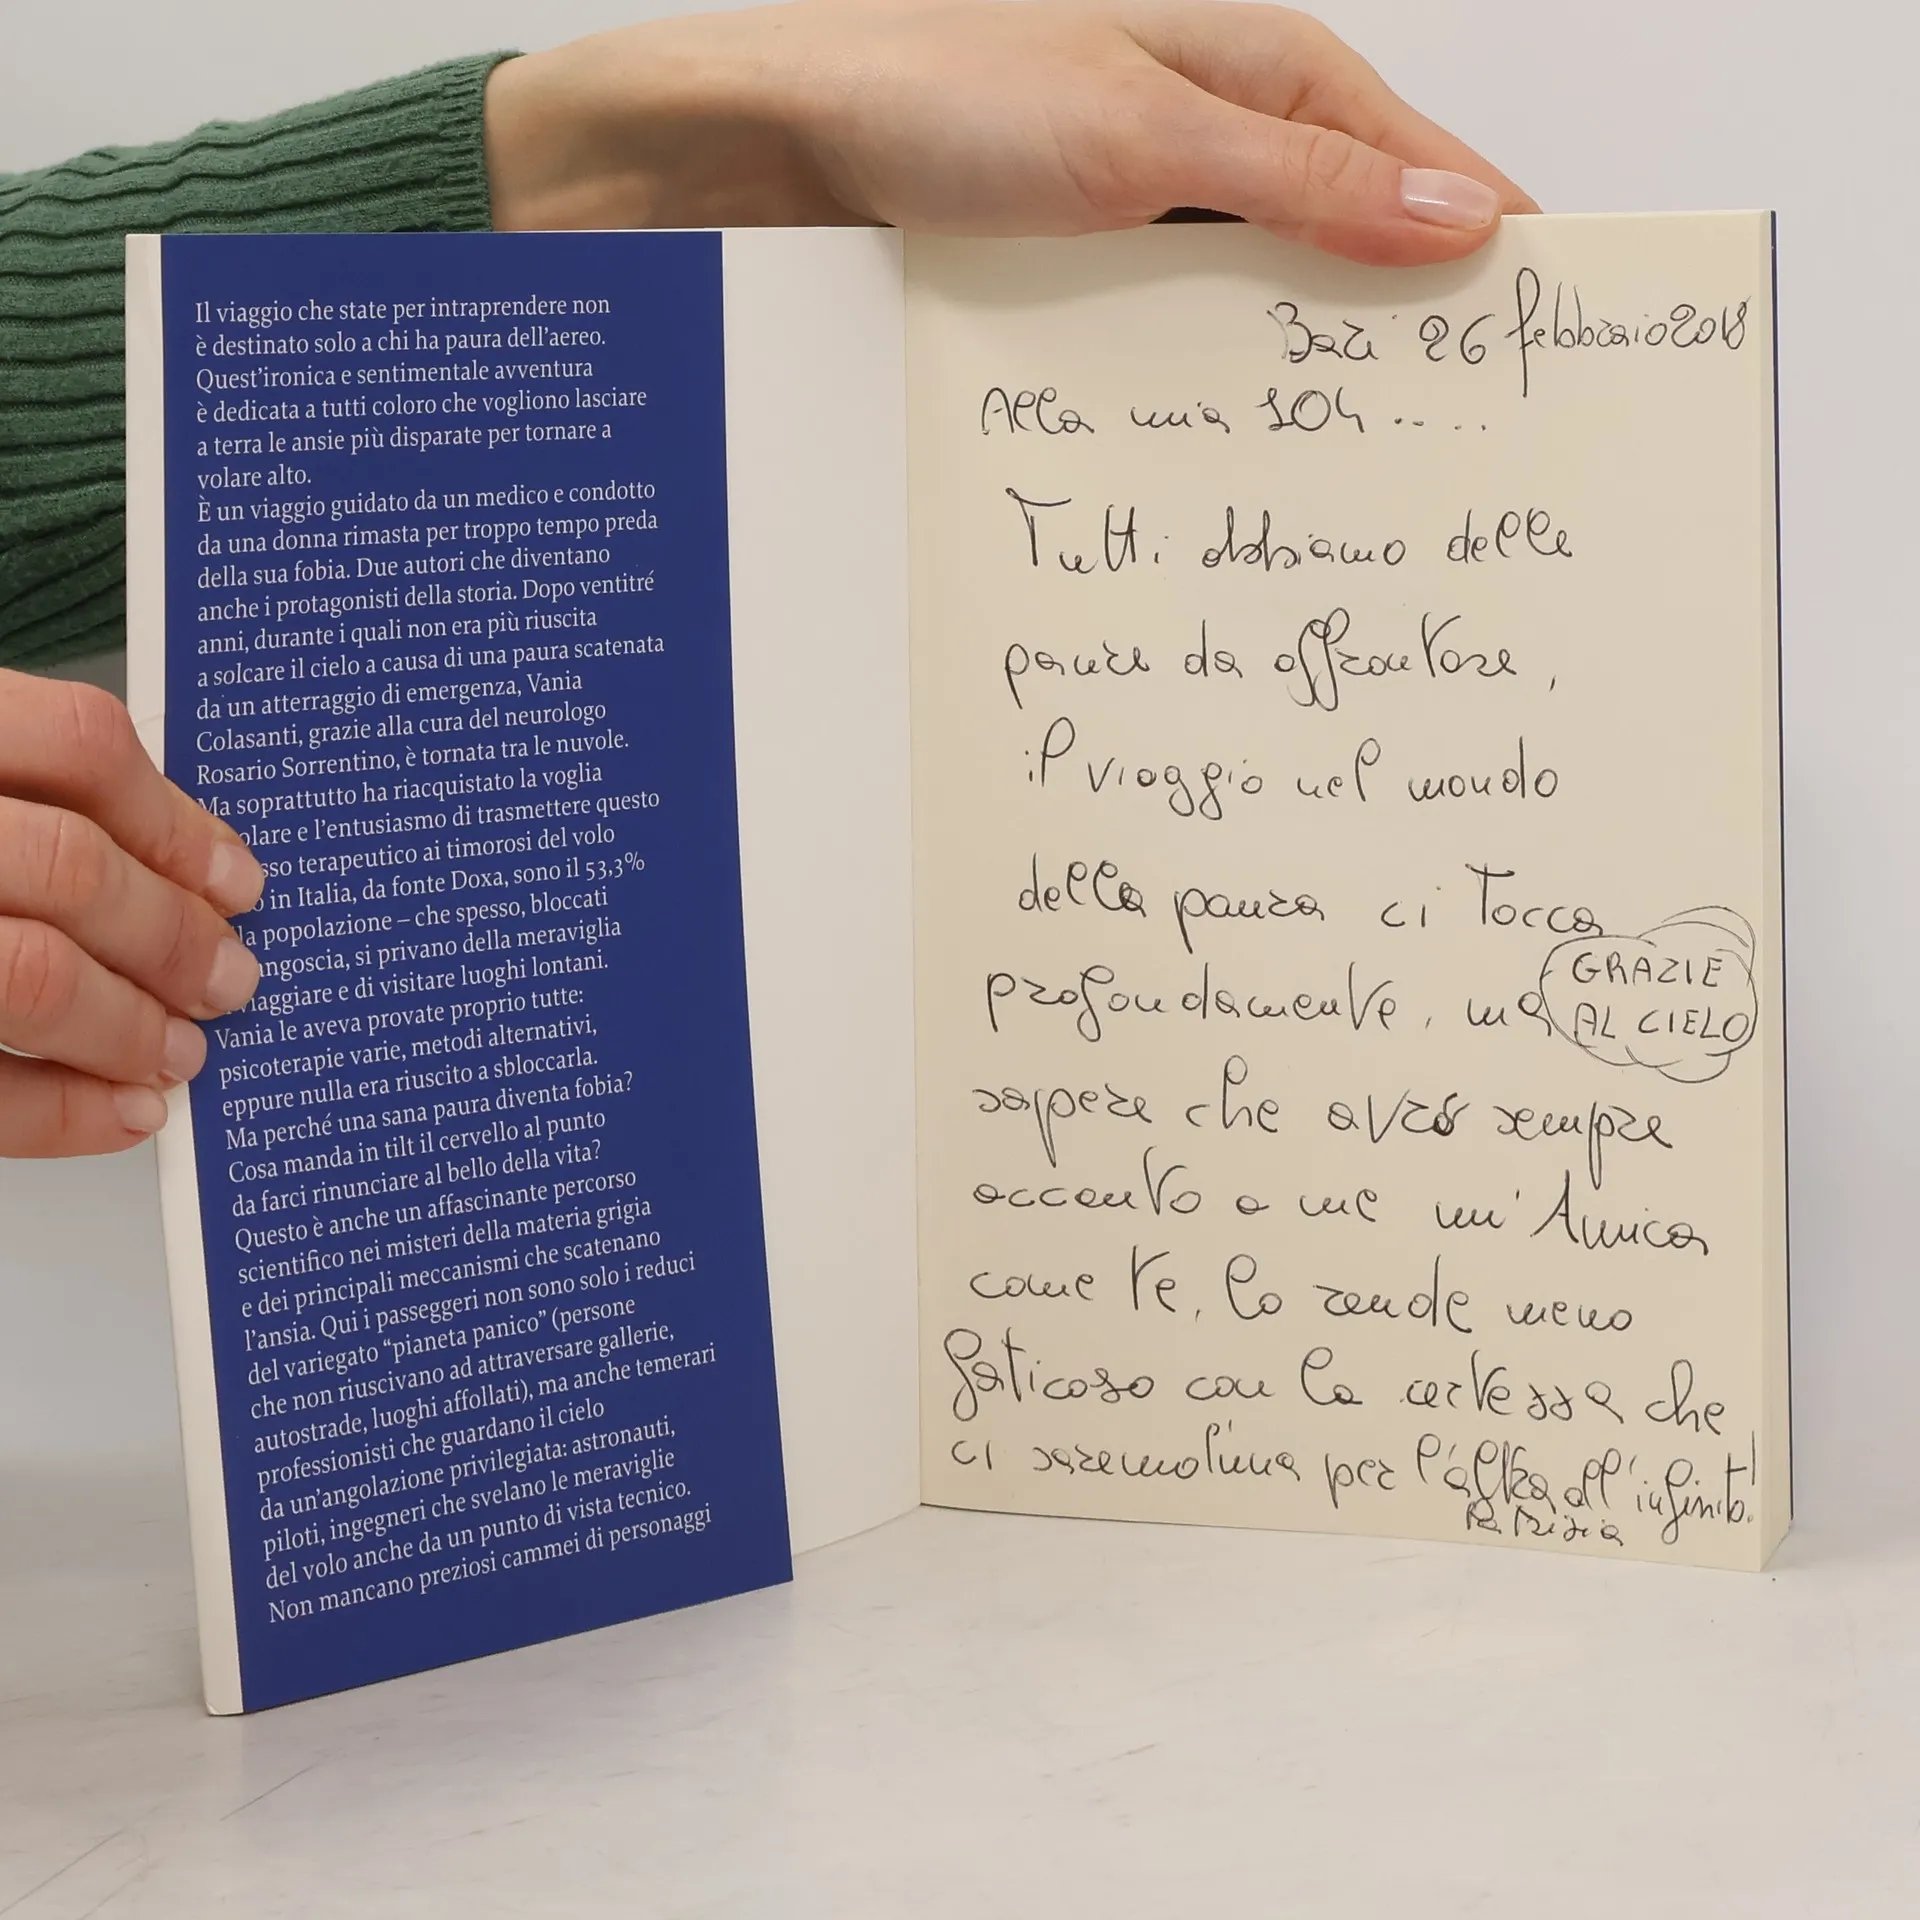 Il viaggio che state per intraprendere non
è destinato solo a chi ha paura dell'aereo.
Quest'ironica e sentimentale avventura
è dedicata a tutti coloro che vogliono lasciare
a terra le ansie più disparate per tornare a
volare alto.
È un viaggio guidato da un medico e condotto
da una donna rimasta per troppo tempo preda
della sua fobia. Due autori che diventano
anche i protagonisti della storia. Dopo ventitré
anni, durante i quali non era più riuscita
a solcare il cielo a causa di una paura scatenata
da un atterraggio di emergenza, Vania
Colasanti, grazie alla cura del neurologo
Rosario Sorrentino, è tornata tra le nuvole.
Ma soprattutto ha riacquistato la voglia
olare e l'entusiasmo di trasmettere questo
sso terapeutico ai timorosi del volo
in Italia, da fonte Doxa, sono il 53,3%
la popolazione – che spesso, bloccati
angoscia, si privano della meraviglia
viaggiare e di visitare luoghi lontani.
Vania le aveva provate proprio tutte:
psicoterapie varie, metodi alternativi,
eppure nulla era riuscito a sbloccarla.
Ma perché una sana paura diventa fobia?
Cosa manda in tilt il cervello al punto
da farci rinunciare al bello della vita?
Questo è anche un affascinante percorso
scientifico nei misteri della materia grigia
e dei principali meccanismi che scatenano
l'ansia. Qui i passeggeri non sono solo i reduci
del variegato "pianeta panico" (persone
che non riuscivano ad attraversare gallerie,
autostrade, luoghi affollati), ma anche temerari
professionisti che guardano il cielo
da un'angolazione privilegiata: astronauti,
piloti, ingegneri che svelano le meraviglie
del volo anche da un punto di vista tecnico.
Non mancano preziosi cammei di personaggi
Bari 26 febbraio 2018
Alla mia 104 .. ..
Tutti abbiamo delle
paure da affrontare,
il viaggio nel mondo
della paura ci tocca
profondamente, ma
GRAZIE
AL CIELO
sapere che avrò sempre
accanto a me un'Amica
come te, lo rende meno
faticoso con la certezza che
ci saremo l'una per l'altra all'infinito!
Patrizia